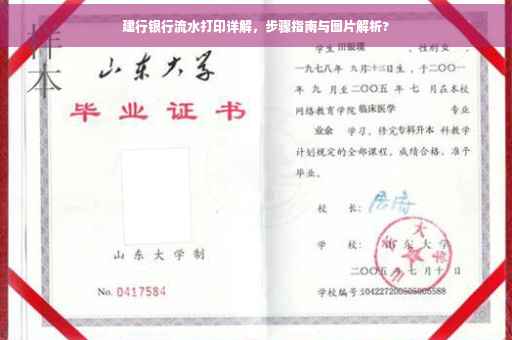 建行银行流水打印详解，步骤指南与图片解析?
样本
山东大学
毕业证书
山东大学制
No. 0417584
学生 田银環，性别女，
一九七八年 九月十三日生，于二〇〇一
年 九 月至二〇〇五 年 七 月在本校
网络教育学院 临床医学 专业
业余 学习，修完专科升本 科教学
计划规定的全部课程，成绩合格，准予
毕业。
校 长:
学 校: 山东大学
二〇〇五 年 七 月 十 日
学校编号: